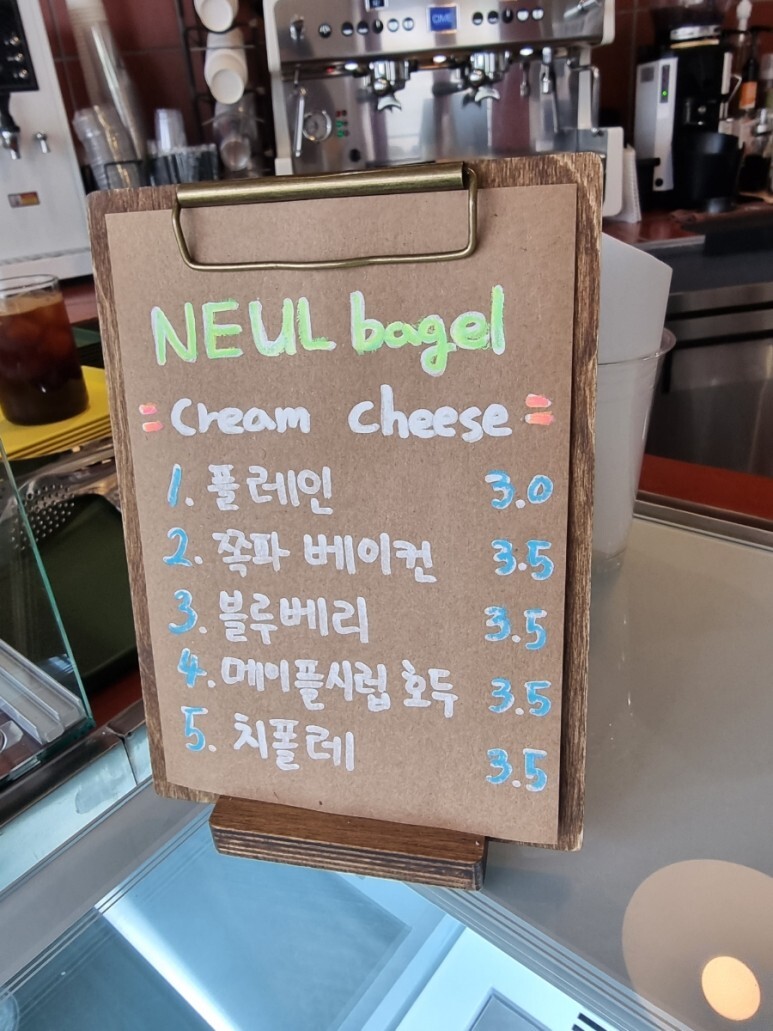 NEUL bagel
= Cream cheese =
1. 플레인 3.0
2. 쪽파 베이컨 3.5
3. 블루베리 3.5
4. 메이플시럽 호두 3.5
5. 치폴레 3.5